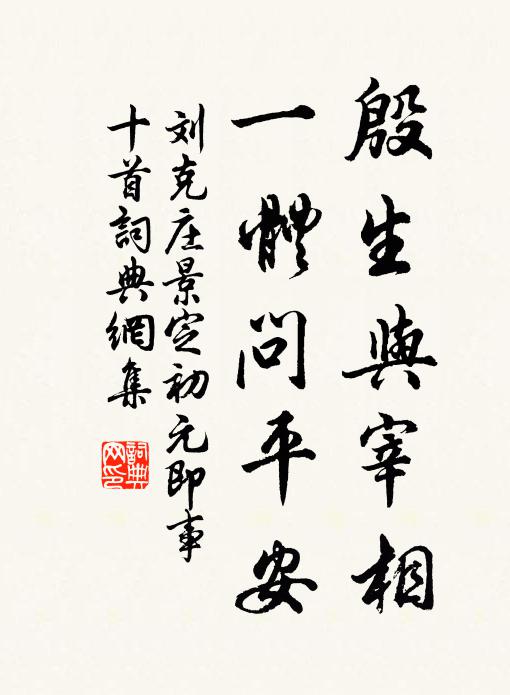 殷生與宰相
一體問平安
刘克庄景定初元即事
十首詞典網集
詞典
网印